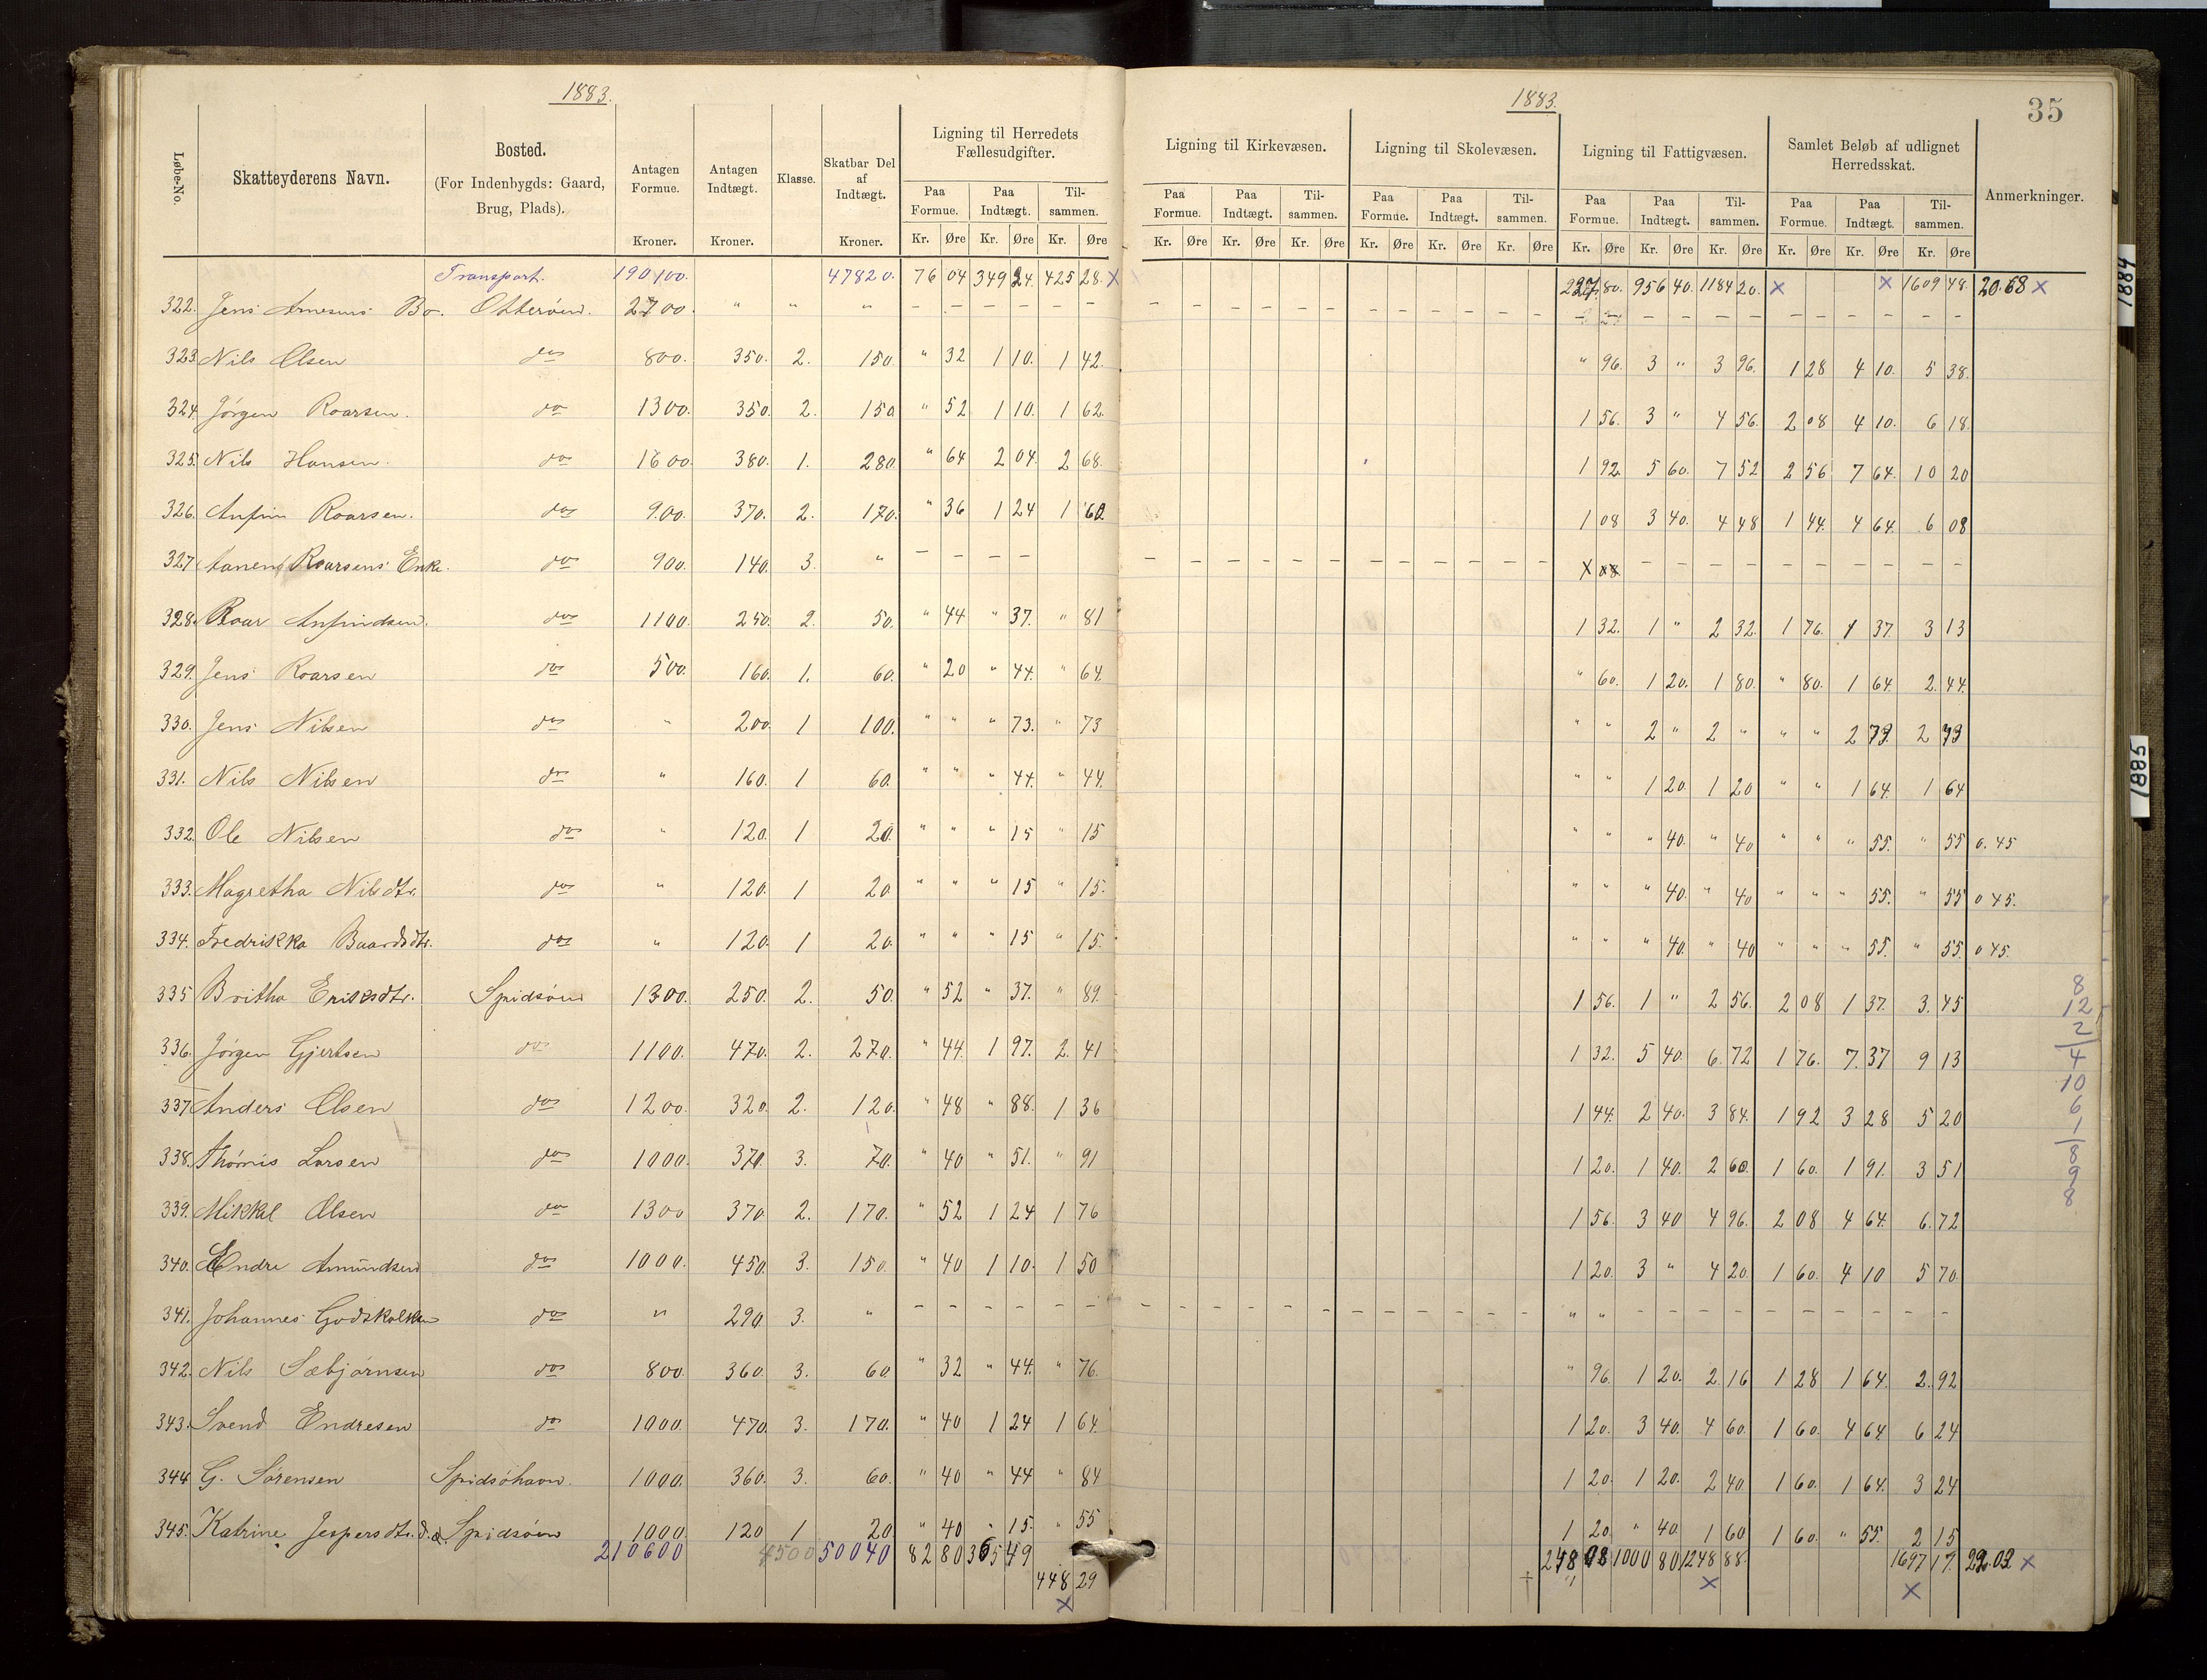 1883.
1883.
35
Løbe-No.
Skatteyderens Navn.
Bosted.
(For Indenbygds: Gaard,
Brug, Plads).
Antagen
Formue.
Kroner.
Antagen
Indtægt.
Kroner.
Klasse.
Skatbar Del
af
Indtægt.
Kroner.
Ligning til Herredets
Fællesudgifter.
Paa Formue. Paa Indtægt. Til- sammen.
Kr. Øre Kr. Øre Kr. Øre
Ligning til Kirkevæsen.
Paa Formue. Paa Indtægt. Til- sammen.
Kr. Øre Kr. Øre Kr. Øre
Ligning til Skolevæsen.
Paa Formue. Paa Indtægt. Til- sammen.
Kr. Øre Kr. Øre Kr. Øre
Ligning til Fattigvæsen.
Paa Formue. Paa Indtægt. Til- sammen.
Kr. Øre Kr. Øre Kr. Øre
Samlet Beløb af udlignet
Herredsskat.
Paa Formue. Paa Indtægt. Til- sammen.
Kr. Øre Kr. Øre Kr. Øre
Anmerkninger.
Transport. 190100. 47820. 76 04 349 24. 425 28. X 227 80. 956 40. 1184 20. X X 1609 48. 20.68 X
322. Jens Arnesens Bo. Otterøen. 2700. " " " – – – – – – – – – – – – – – – – – – – – – – – – – – – – – –
323. Nils Olsen do 800. 350. 2. 150. " 32 1 10. 1 42. " 96. 3 " 3 96. 1 28 4 10. 5 38.
324. Jörgen Roarsen. do 1300. 350. 2. 150 " 52 1 10. 1 62. 1 56. 3 " 4 56. 2 08 4 10. 6 18.
325. Nils Hansen. do 1600. 380. 1. 280. " 64 2 04. 2 68. 1 92. 5 60. 7 52 2 56 7 64. 10 20
326. Anfin Roarsen. do 900. 370. 2. 170. " 36 1 24 1 60. 1 08 3 40. 4 48 1 44. 4 64. 6 08
327 Roarsens Enke. do 900. 140. 3. " – – – – – – – – – – – – – – – – – – – – – – – – – –
328. Roar Anfindsen. do 1100. 250. 2. 50. " 44 " 37. " 81 1 32. 1 " 2 32. 1 76. 1 37. 3 13
329. Jens Roarsen do 500. 160. 1. 60. " 20 " 44. " 64. " 60. 1 20. 1 80. " 80. 1 64. 2. 44.
330. Jens Nilsen do " 200. 1 100. " " " 73. " 73 " " 2 " 2 " " " 2 73. 2 73
331. Nils Nilsen do " 160. 1 60. " " " 44. " 44. " " 1 20. 1 20 " " 1 64. 1 64
332. Ole Nilsen do " 120. 1 20. " " " 15 " 15 " " " 40. " 40 " " " 55. " 55 0.45
333. Magretha Nilsdtr. do " 120. 1 20. " " " 15 " 15. " " " 40. " 40 " " " 55. " 55 0 45.
334. Fredrikka Baardsdtr. do " 120. 1 20. " " " 15 " 15. " " " 40. " 40 " " " 55. " 55. 0 45.
335 Britha Eriksdtr. Spidsöen 1300. 250. 2. 50. " 52 " 37. " 89. 1 56. 1 " 2 56. 2 08 1 37. 3. 45
336. Jörgen Gjertsen do 1100. 470. 2. 270. " 44. 1 97. 2. 41 1 32. 5 40. 6. 72 1 76. 7. 37 9 13
337 Anders Olsen do 1200. 320. 2. 120. " 48 " 88. 1 36 1 44. 2 40. 3 84. 1 92 3 28 5 20
338. Larsen do 1000. 370. 3. 70. " 40 " 51. " 91 1 20. 1 40. 2 60. 1 60. 1 91. 3 51
339. Mikkel Olsen do 1300 370 2. 170. " 52 1 24 1 76 1 56. 3 40 4 96. 2 08 4 64. 6. 72
340. Endre Amundsen do 1000. 450. 3. 150. " 40 1 10. 1 50 1 20. 3 " 4 20. 1 60. 4 10 5 70
341. Johannes Godskalksen do " 290. 3. " – – – – – – – – – – – – – – – – – – " " – – – – – – – – – –
342. Nils Sæbjörnsen do 800. 360. 3. 60. " 32 " 44. " 76. " 96. 1 20. 2. 16 1 28 1 64. 2. 92
343. Svend Endresen do 1000. 470. 3. 170. " 40 1 24 1 64. 1 20. 3 40. 4 60. 1 60. 4 64. 6 24
344 G. Sörensen Spidsöhavn. 1000. 360. 3. 60. " 40 " 44 " 84 1 20. 1 20. 2 40 1 60. 1 64. 3 24
345. Katrine Jespersdtr. Spidsöen 1000. 120 1 20 " 40 " 15. " 55 1 20 " 40. 1 60 1 60. " 55. 2 15
210600 50040 82 80 365 49 1000 80 1248 88. 1697 17. 22.03 X
448 29
X X X
8
12
2
4
10
6
1
8
9
8
1884
1885